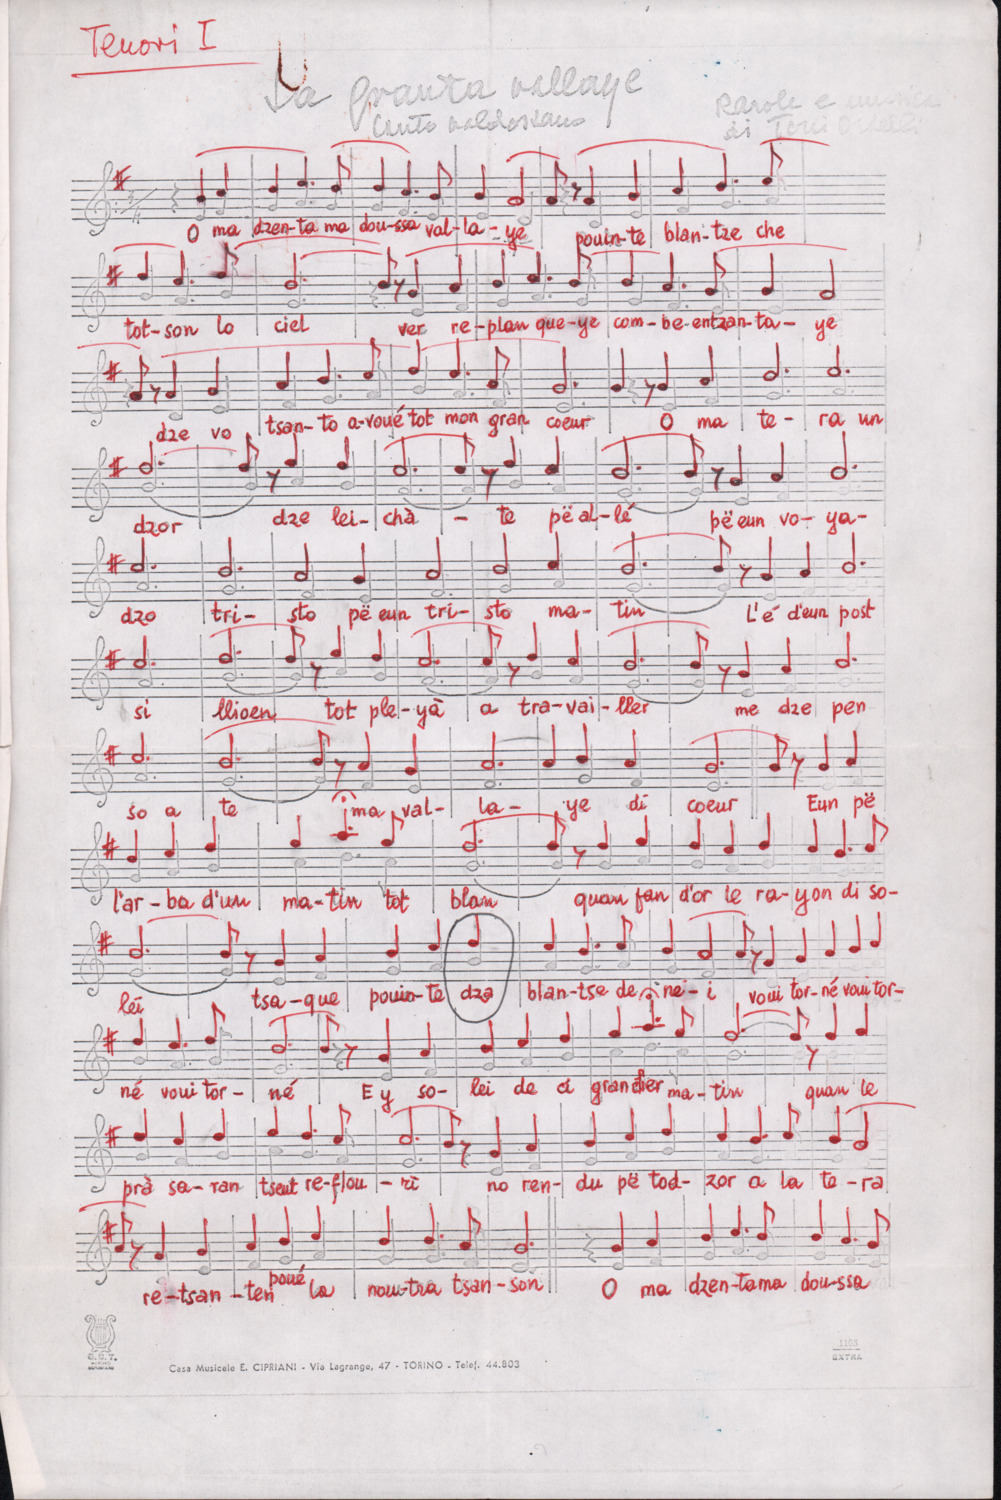 Tenori I
La granta vallaye
Canto valdostano
Parole e musica
di Toni
O ma dzen-ta ma dou-ssa val-la-ye pouin-te blan-tze che
tot-son lo ciel ver re-plan que-ye com-be-entzan-ta-ye
dze vo tsan-to a-voué tot mon gran coeur O ma te-ra un
dzor dze lei-chà-te pë al-lé pë eun vo-ya-
dzo tri-sto pë eun tri-sto ma-tin L'é d'eun post
si llioen tot ple-yà a tra-vai-ller me dze pen
so a te ma val-la-ye di coeur Eun pë
l'ar-ba d'un ma-tin tot blan quan fan d'or le ra-yon di so-
lei tsa-que pouin-te dza blan-tse de nei-i voui tor-né voui tor-
né voui tor-né E y so-lei de ci gran dzer ma-tin quan le
prà sa-ran tseut re-flou-ri no ren-du pë tod-zor a la te-ra
re-tsan-ten poué la nou-tra tsan-son O ma dzen-ta ma dou-ssa
Casa Musicale E. CIPRIANI - Via Lagrange, 47 - TORINO - Telef. 44.803
EXTRA